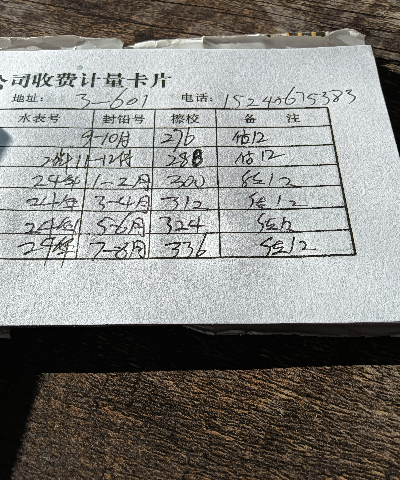 公司收费计量卡片
地址: 3-601 电话: 15240675383
水表号 封铅号 擦校 备注
9-10月 276 估12
23年 11-12月 288 估12
24年 1-2月 300 估12
24年 3-4月 312 估12
24年 5-6月 324 估12
24年 7-8月 336 估12